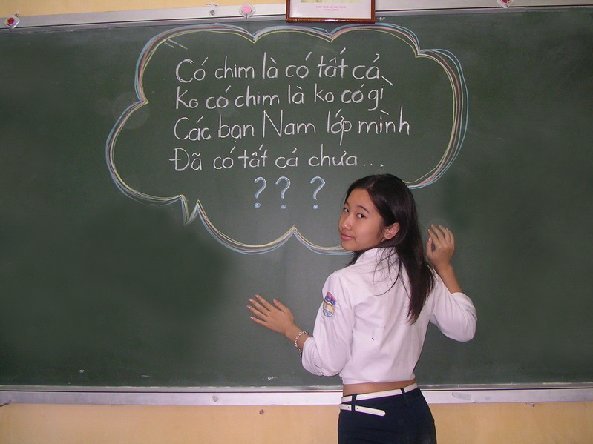 Có chim là có tất cả
Ko có chim là ko có gì
Các bạn Nam lớp mình
Đã có tất cả chưa...
? ? ?